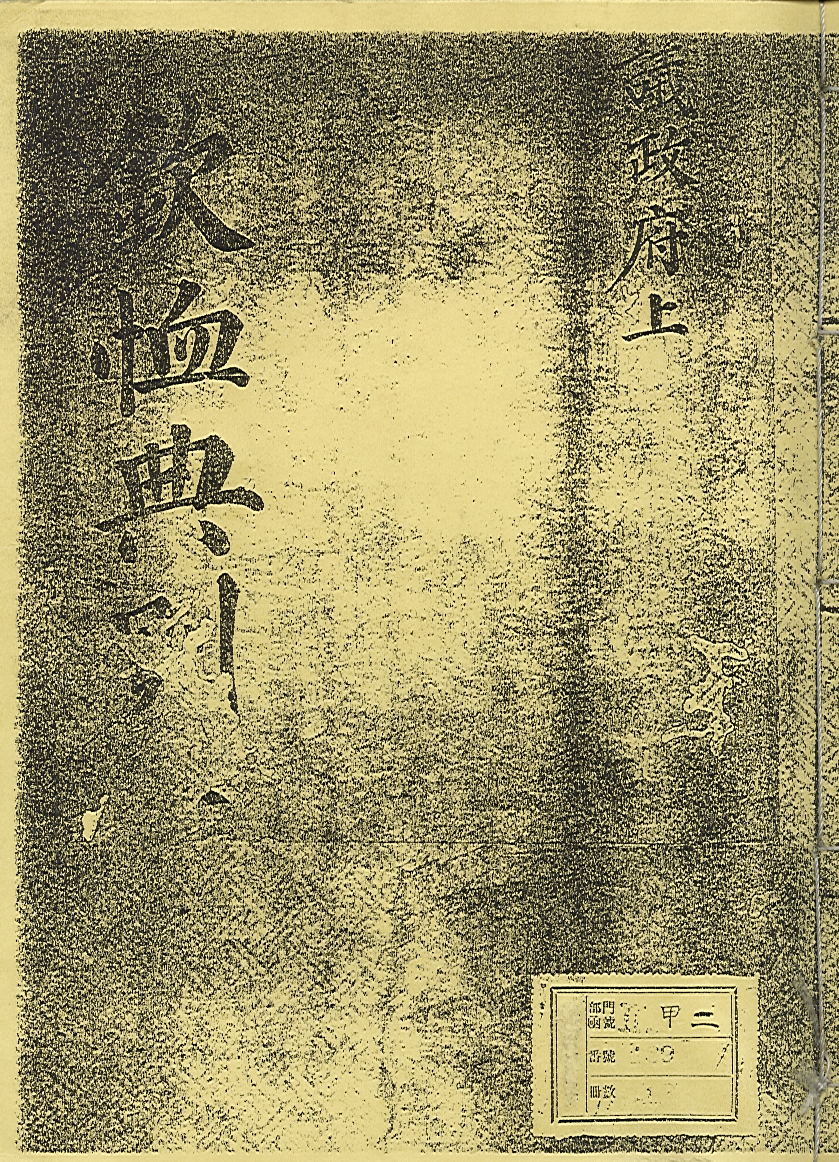 議政府上
欽恤典則
部門
函號 甲二
番號
冊數